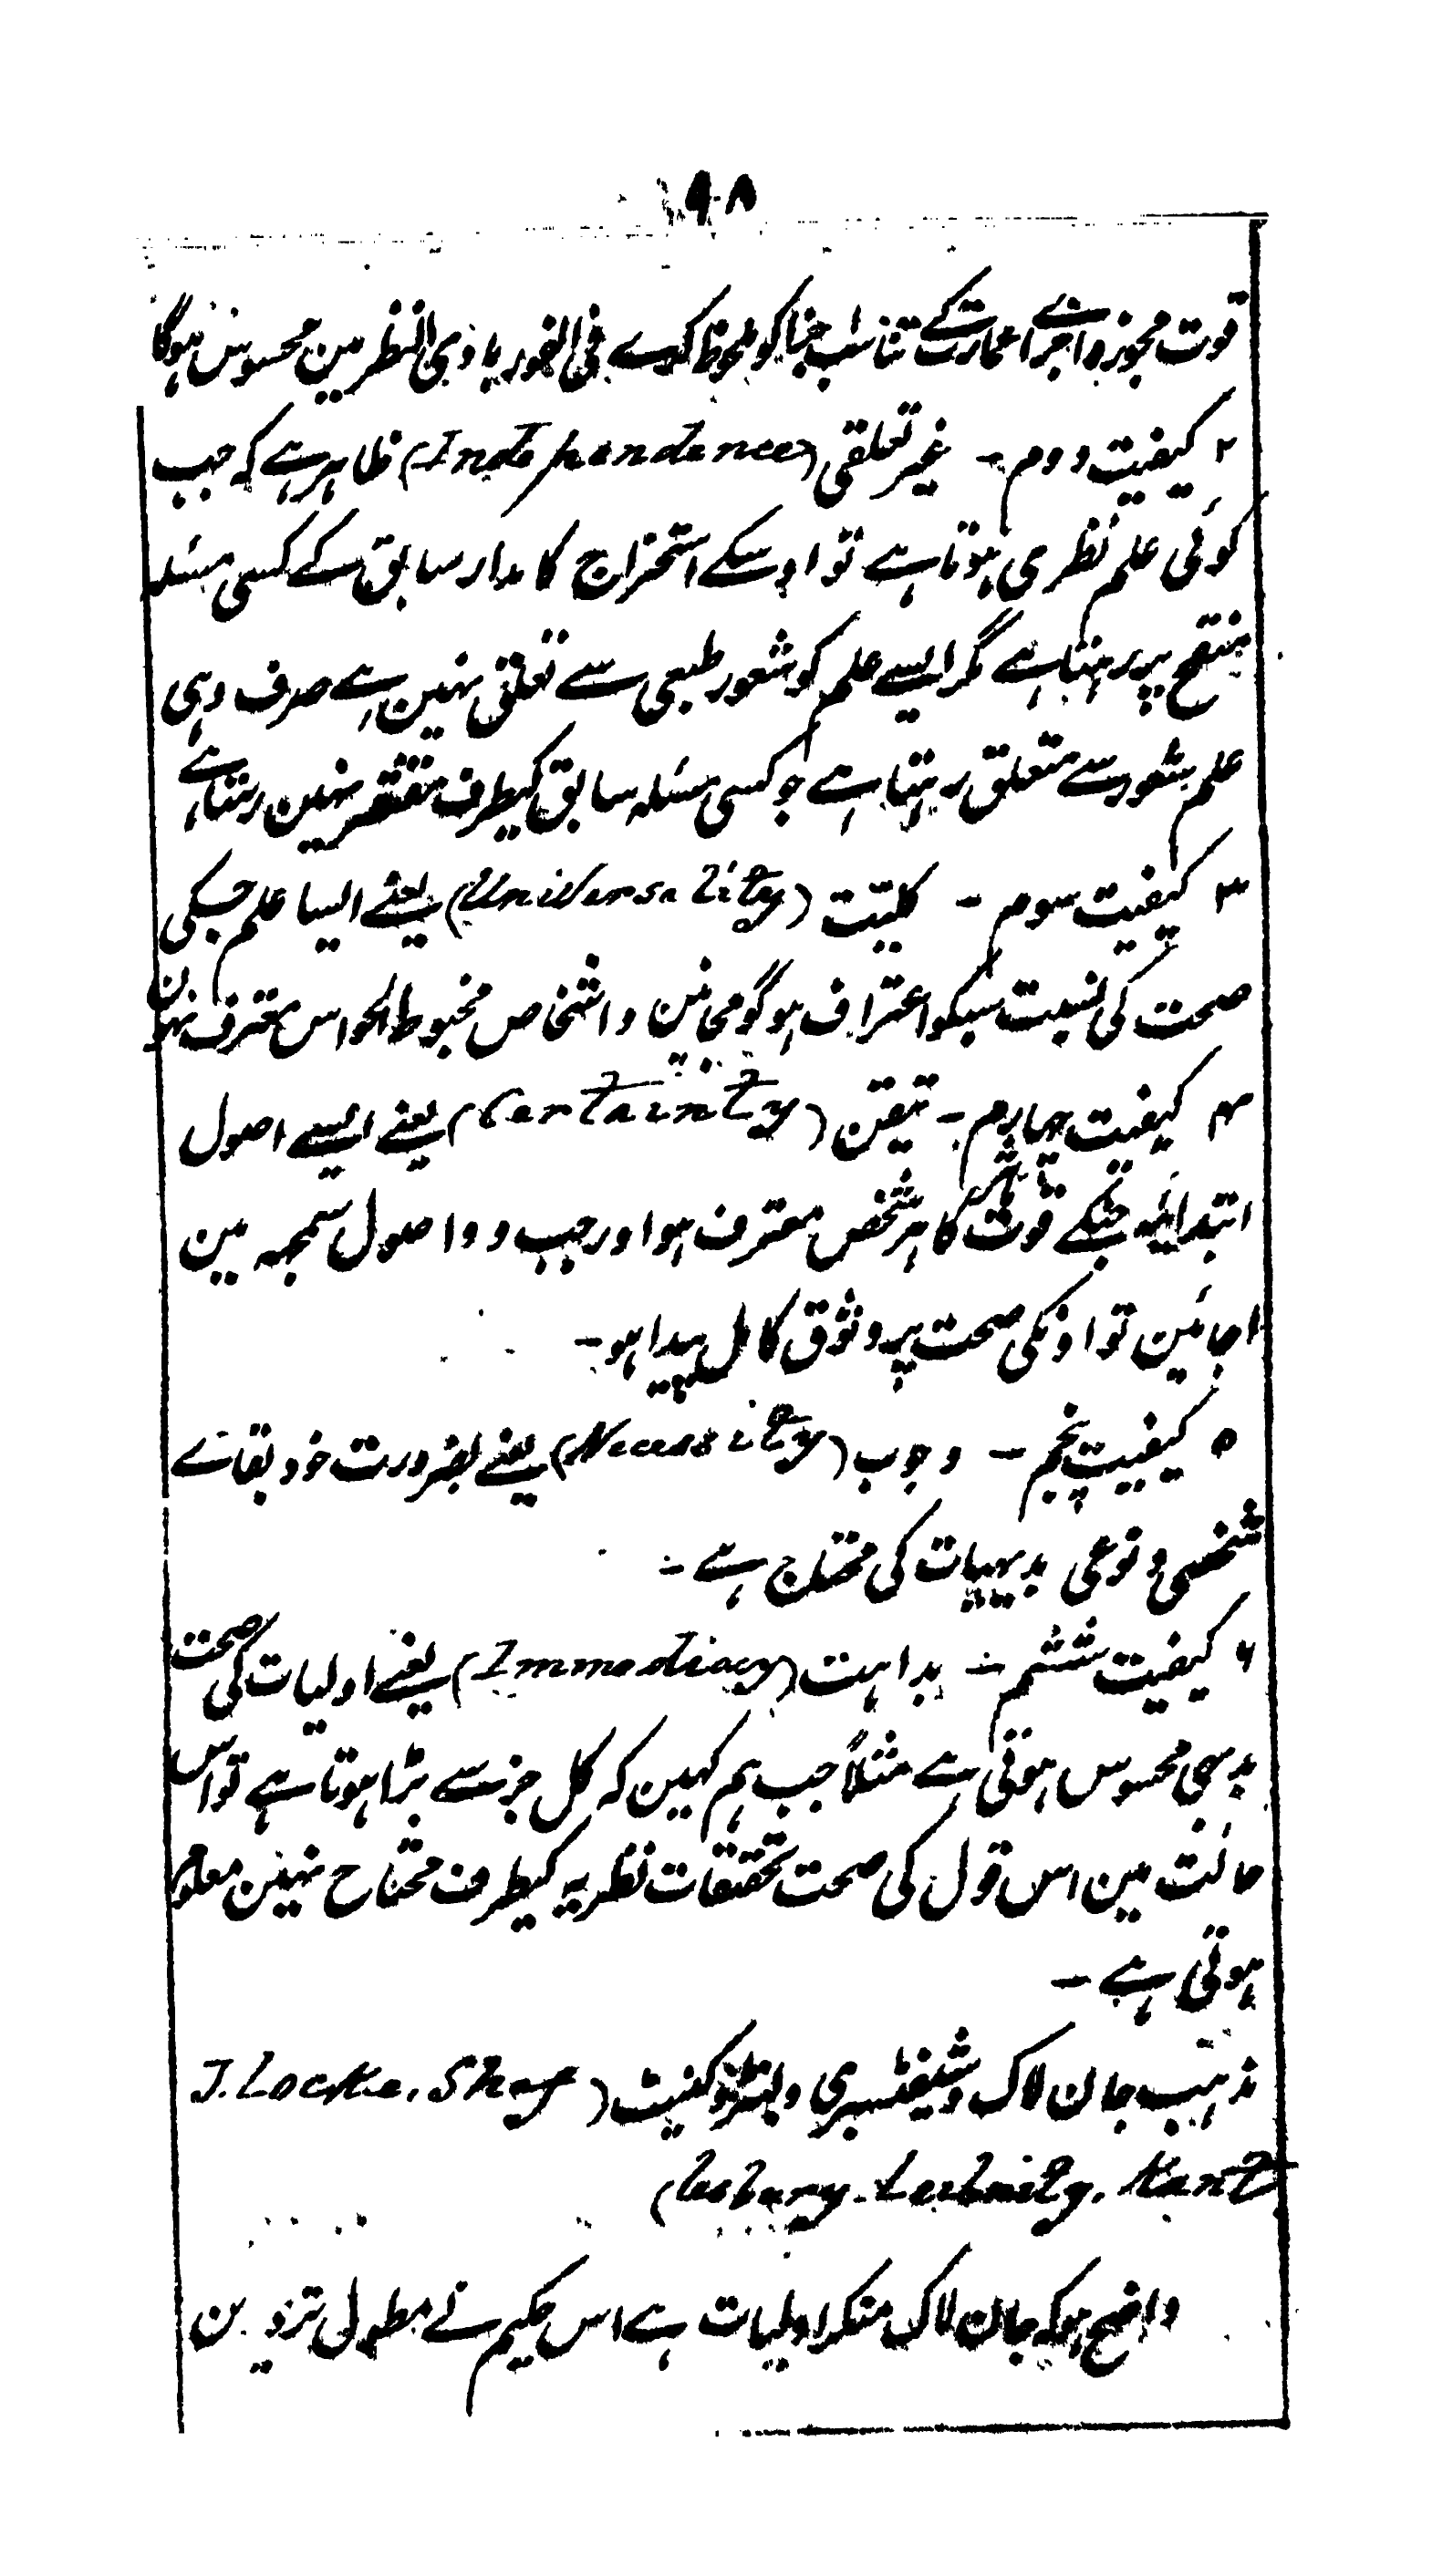 ۹۸
قوت مجوزہ اجزاے عمارت کے تناسب جنا کو ملحوظ کرے فی الفور بادی النظر مین محسوس ہوگا
۲ کیفیت دوم - غیر تعلقی (Independence) ظاہر ہے کہ جب
کوئی علم نظری ہوتا ہے تو اوسکے استخراج کا مدار سابق کے کسی مسئلہ
منقح پر رہتا ہے مگر ایسے علم کو شعور طبعی سے تعلق نہین ہے صرف وہی
علم شعور سے متعلق رہتا ہے جو کسی مسئلہ سابق کیطرف مفتقر نہین رہتا ہے
۳ کیفیت سوم - کلیّت (Universality) یعنے ایسا علم جسکی
صحت کی نسبت سبکو اعتراف ہو گو مجانین و اشخاص مخبوط الحواس معترف نہون
۴ کیفیت چہارم - تیقن (Certainty) یعنے ایسے اصول
ابتدائیہ جنکے قوت تاثیر کا ہر شخص معترف ہو اور جب وہ اصول سمجہہ مین
اجائین تو اونکی صحت پر وثوق کامل پیدا ہو -
۵ کیفیت پنجم - وجوب (Necessity) یعنے بضرورت خود بقاے
شخصی و نوعی بدیہیات کی محتاج ہے -
۶ کیفیت ششم - بداہت (Immediacy) یعنے اولیات کی صحت
بدیہی محسوس ہوتی ہے مثلاً جب ہم کہین کہ کل جز سے بڑا ہوتا ہے تو اس
حالت مین اس قول کی صحت تحقیقات نظریہ کیطرف محتاج نہین معلوم
ہوتی ہے -
مذہب جان لاک و شیفٹسبری و لبنٹز و کنیٹ (J. Locke. Shaf
tesbury. Leibnitz. Kant)
واضح ہو کہ جان لاک منکر اولیات ہے اس حکیم نے مطول تزویدن